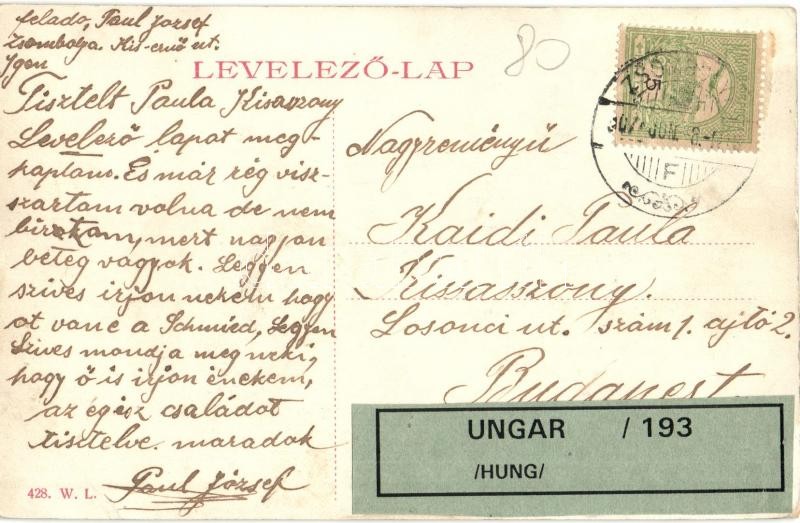 felado, Paul József
Zsombolya. Kis-ernő ut.
Igen
80
LEVELEZŐ-LAP
Tisztelt Paula Kisaszony
Levelező lapat meg-
kaptam. És már rég visz-
szartam volna de nem
birtam, mert nagyon
beteg vagyok. Leggen
szives irjon nekem hogy
ot vane a Schmied, Leggen
Szives mondja meg neki,
hogy ő is irjon énekem,
az égisz családot
tisztelve maradok
Paul József
Nagyreményű
Kaidi Paula
Kissasszony.
Losonci ut. szám 1. ajtó 2.
Budapest
UNGAR / 193
/HUNG/
428. W. L.